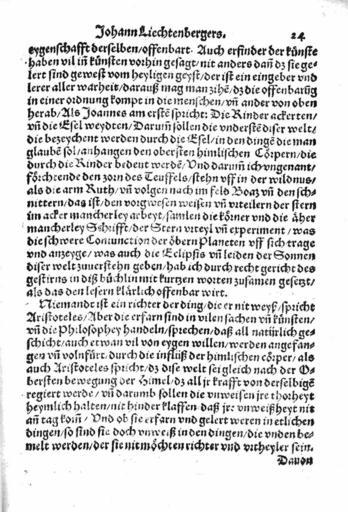 Johann Liechtenbergers. 24
eygenschafft derselben/offenbart. Auch erfinder der künste
haben vil in künsten vorhin gesagt/nit anders dañ dz sie ge-
lert sind gewest vom heyligen geyst/der ist ein eingeber vnd
lerer aller warheit/darauß mag man zihē/dz die offenbarūg
in einer ordnung kompt in die menschen/vñ ander von oben
herab/Als Joannes am erstē spricht: Die Rinder ackerten/
vñ die Esel weydten/Darum̄ sollen die vnderstē diser welt/
die bezeychent werden durch die Esel/in den dingē die man
glaubē sol/anhangen den obersten himlischen Cörpern/die
durch die Rinder bedeut werdē/Vnd darum̄ ich vngenant/
förchtende den zorn des Teuffels/stehn vff in der wildnus/
als die arm Ruth/vñ volgen nach im feld Boaz vñ den sch-
nittern/das ist/den vorgwesen weisen vñ vrteilern der stern
im acker mancherley arbeyt/samlen die körner vnd die äher
mancherley Schrifft/der Stern vrteyl vñ experiment/was
die schwere Coniunction der öbern Planeten vff sich trage
vnd anzeyge/was auch die Eclipsis vñ leiden der Sonnen
diser welt zuuerstehn geben/hab ich durch recht gericht des
gestirns in diß büchlin mit kurtzen worten zusamen gesetzt/
als das den lesern klärlich offenbar wirt.
Niemandt ist ein richter der ding/die er nit weyß/spricht
Aristoteles/Aber die erfarn sind in vilen sachen vñ künsten/
vñ die Philosophey handeln/sprechen/daß all natürlich ge-
schicht/auch etwan vil von eygen willen/werden angefan-
gen vñ volnfürt/durch die influß der himlischen cörper/als
auch Aristoteles spricht/dz dise welt sei gleich nach der O-
bersten bewegung der Himel/dz all jr krafft von derselbigē
regiert werde/vñ darumb sollen die vnweisen jre thorheyt
heymlich halten/nit hinder klaffen daß jr vnweißheyt nit
an tag kom̄/Vnd ob sie erfarn vnd gelert weren in etlichen
dingen/so sind sie doch vnweiß in den dingen/die vnden be-
melt werden/der sie nit möchten richter vnd vrtheyler sein.
Dauon